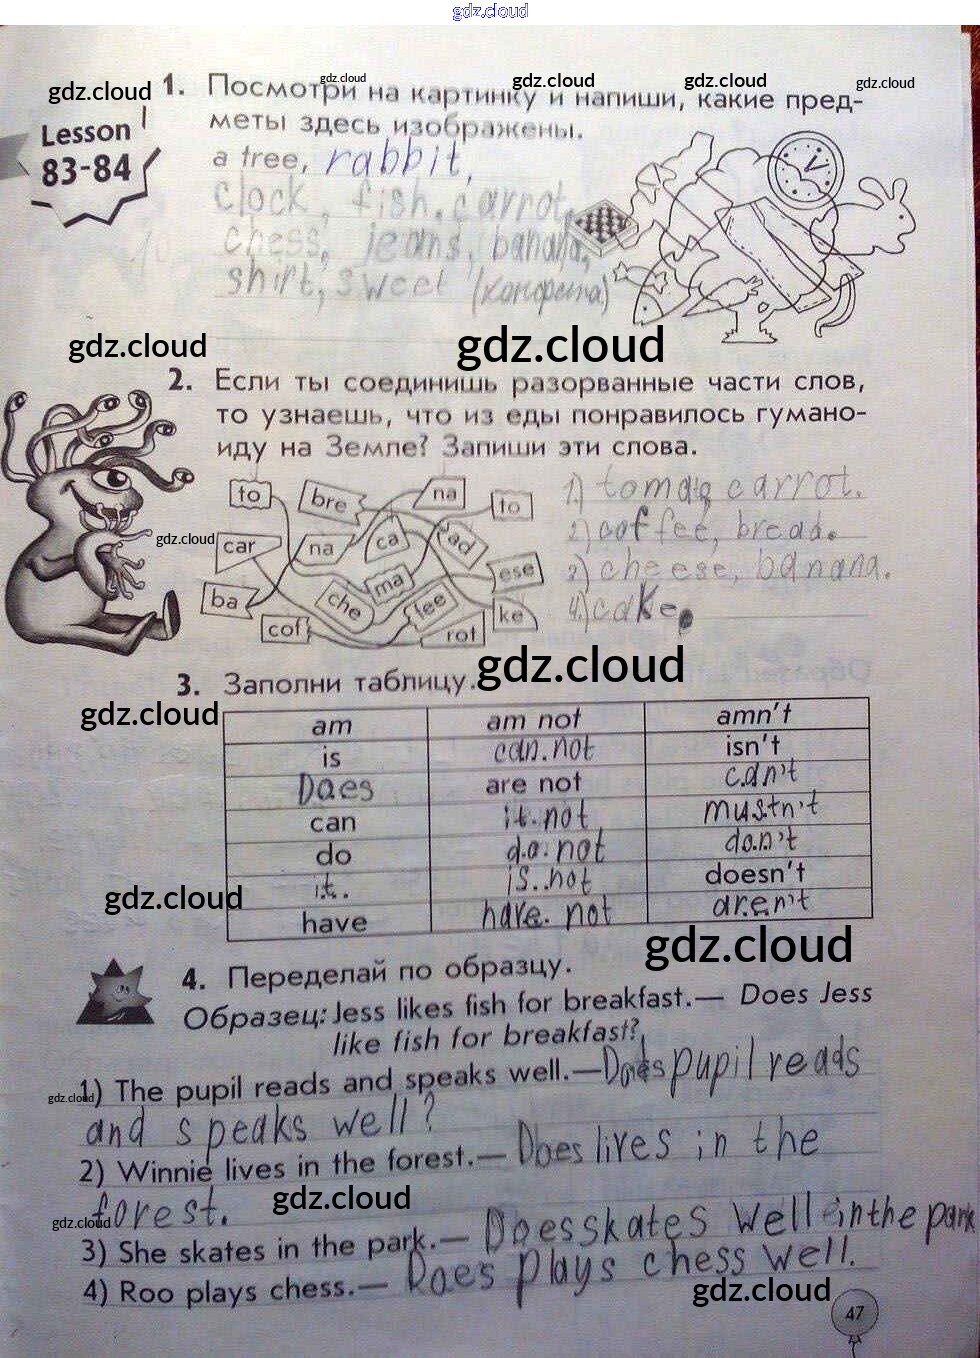 gdz.cloud
gdz.cloud
gdz.cloud
gdz.cloud
gdz.cloud
gdz.cloud
Lesson
83-84
1. Посмотри на картинку и напиши, какие пред-
меты здесь изображены.
a tree, rabbit,
clock, fish, carrot,
chess, jeans, banana,
shirt, sweet (конфета)
gdz.cloud
gdz.cloud
2. Если ты соединишь разорванные части слов,
то узнаешь, что из еды понравилось гумано-
иду на Земле? Запиши эти слова.
to
bre
na
to
car
na
ca
ad
ese
ba
che
ma
fee
ke
cof
rot
gdz.cloud
1) tomato carrot.
2) coffee, bread.
3) cheese, banana.
4) cake.
gdz.cloud
3. Заполни таблицу.
gdz.cloud
am am not amn't
is can not isn't
Does are not can't
can it not mustn't
do do not don't
it is not doesn't
have have not aren't
gdz.cloud
gdz.cloud
4. Переделай по образцу.
Образец: Jess likes fish for breakfast.— Does Jess
like fish for breakfast?
1) The pupil reads and speaks well.— Does pupil reads
gdz.cloud
and speaks well?
2) Winnie lives in the forest.— Does lives in the
forest.
gdz.cloud
gdz.cloud
3) She skates in the park.— Does skates well in the park
4) Roo plays chess.— Does plays chess well.
gdz.cloud
47